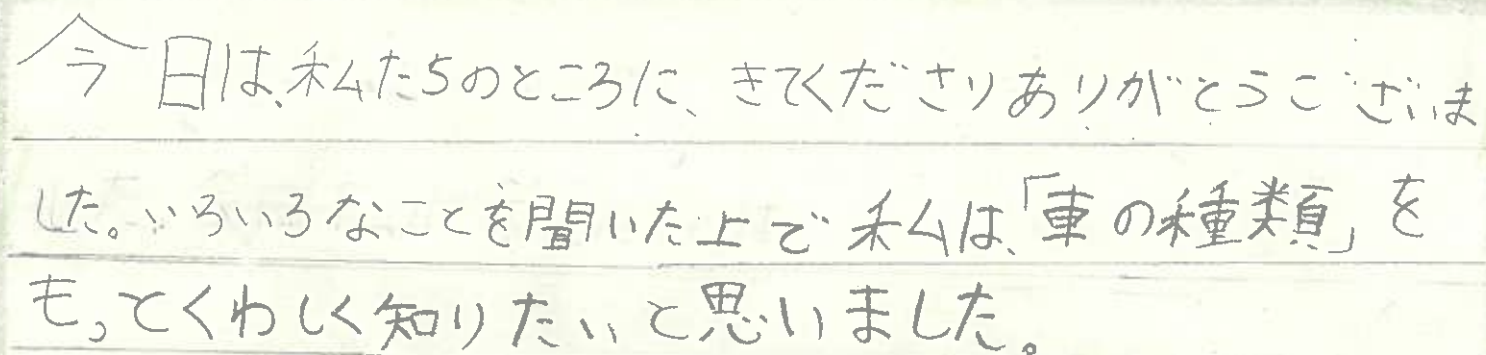 今日は、私たちのところに、きてくださりありがとうございま
した。いろいろなことを聞いた上で私は、「車の種類」を
もっとくわしく知りたいと思いました。